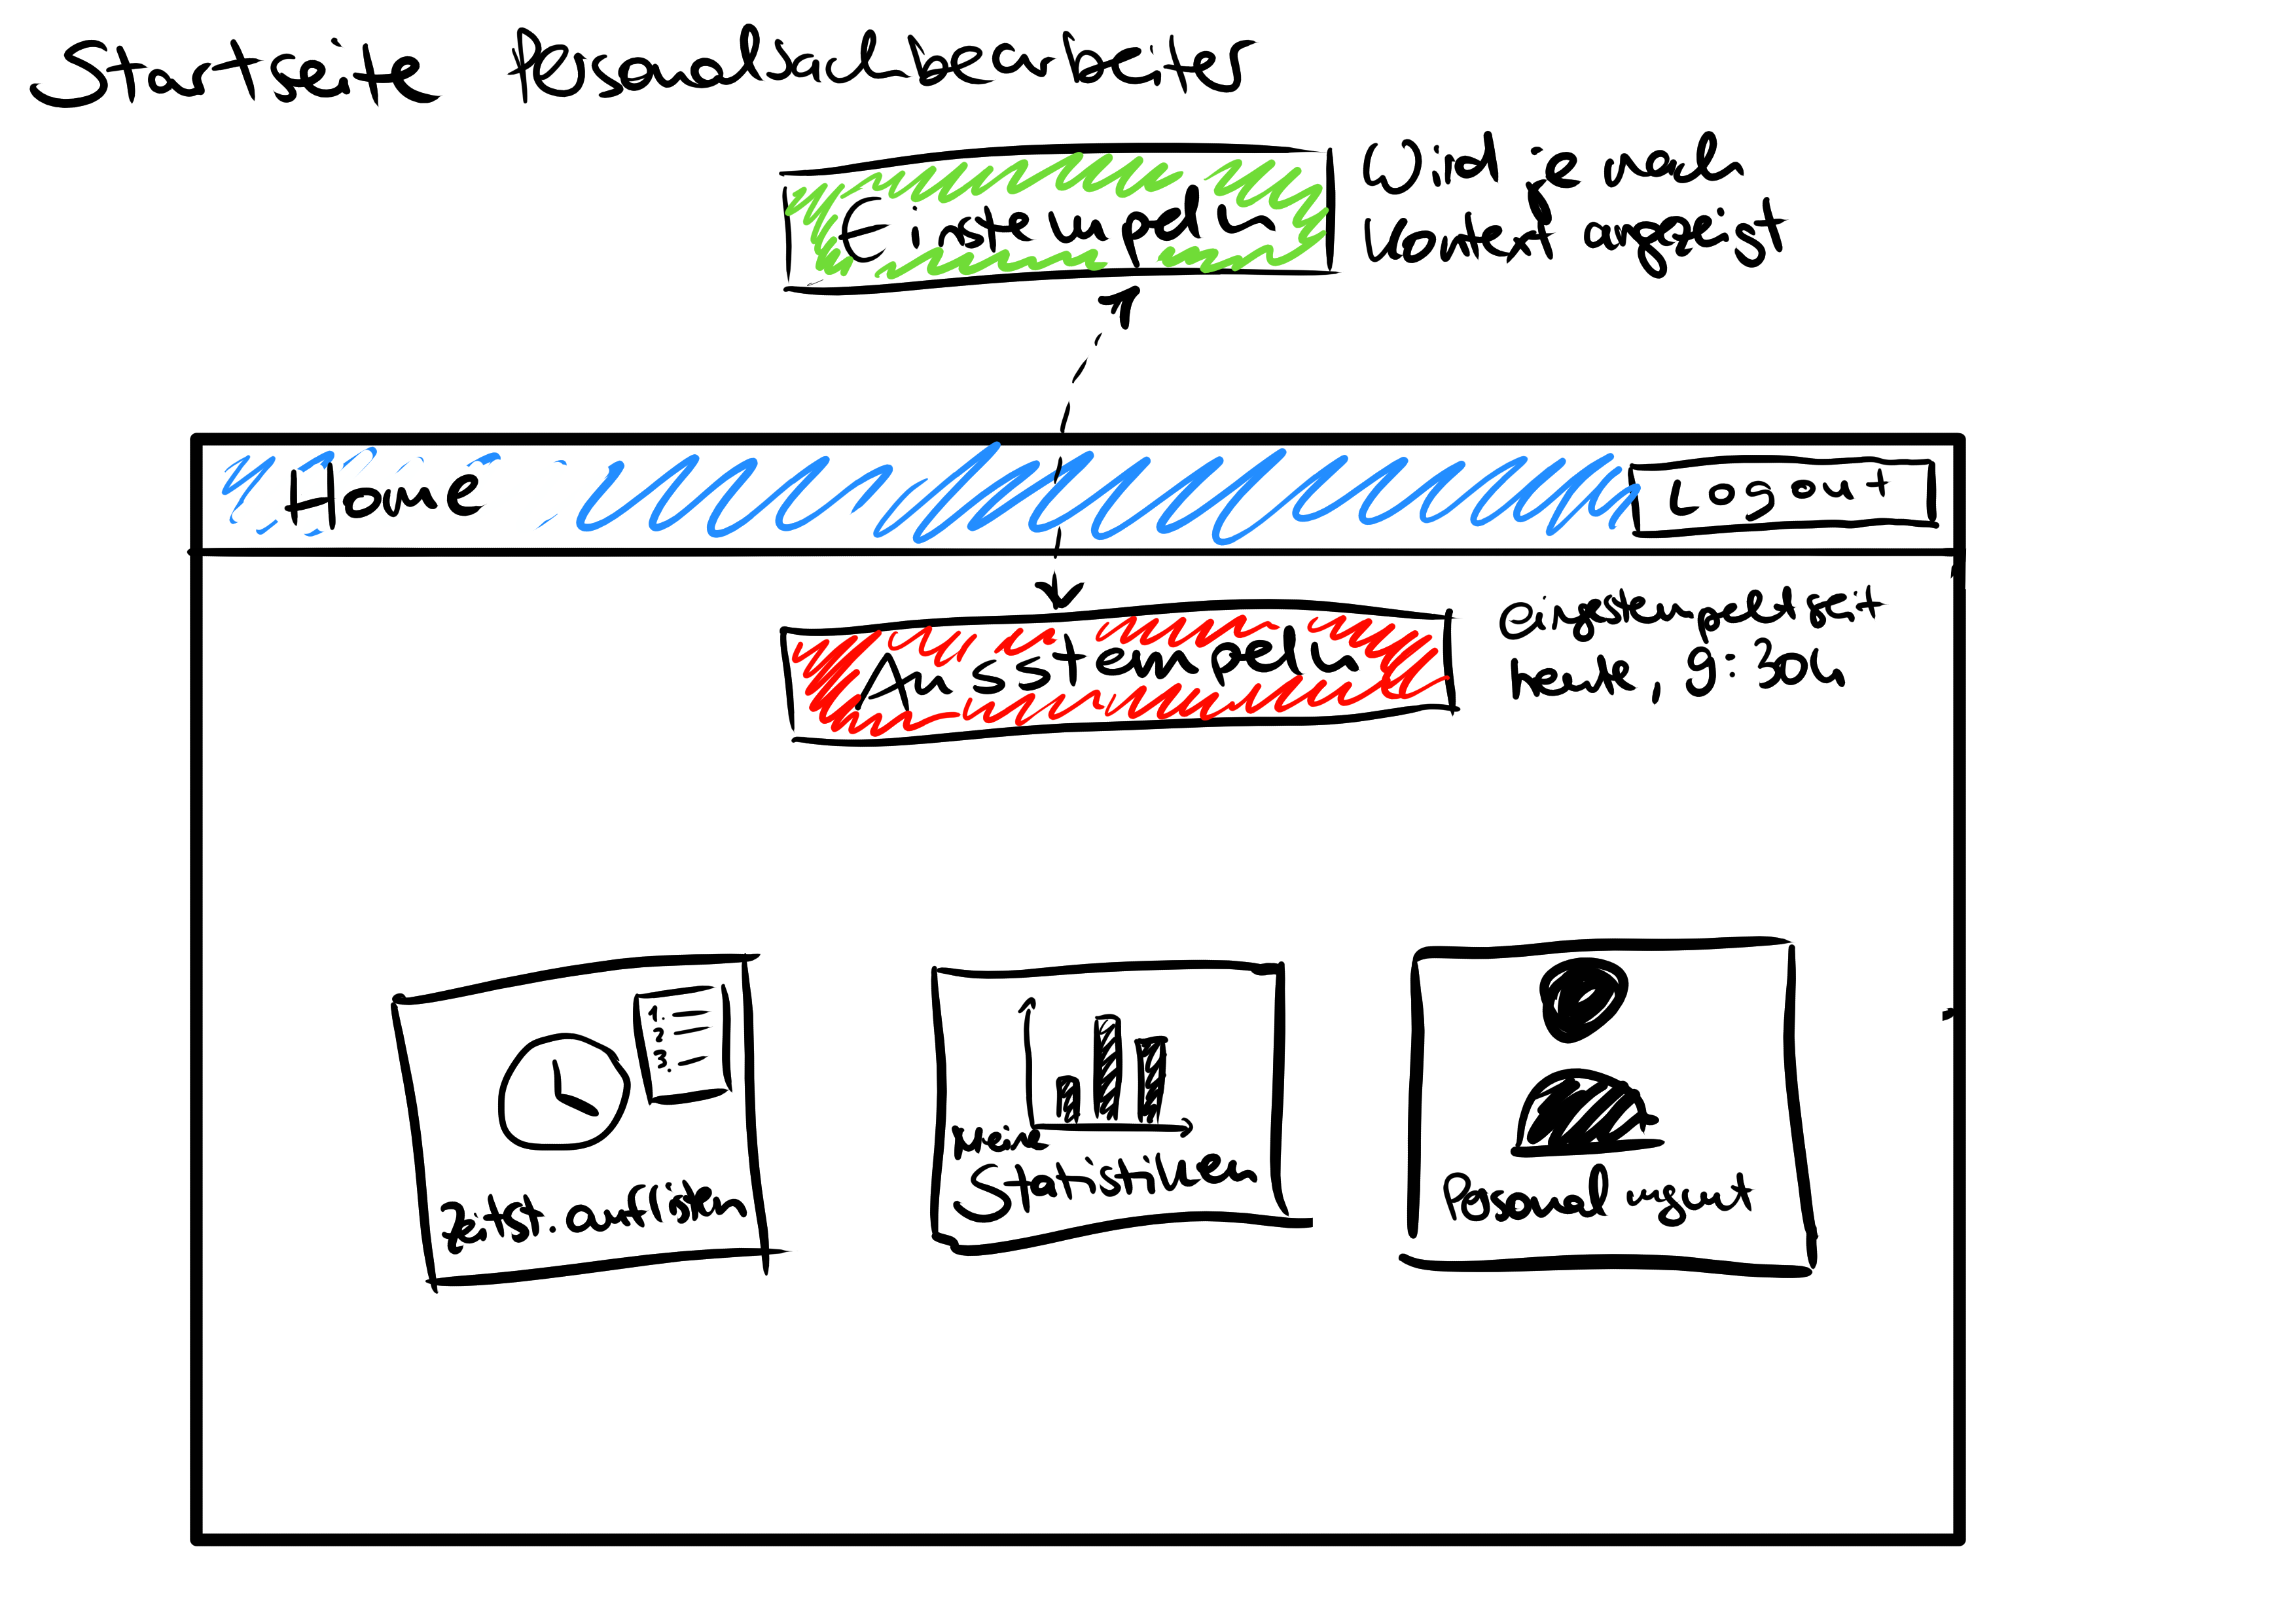 Startseite Personalsachbearbeiter
Einstempeln
Wird je nach
Kontext angezeigt
Home
Logout
Ausstempeln
eingestempelt seit
heute, 9:30h
1.
2
3.
Zeitst. auflisten
Meine
Statistiken
Personal mgmt